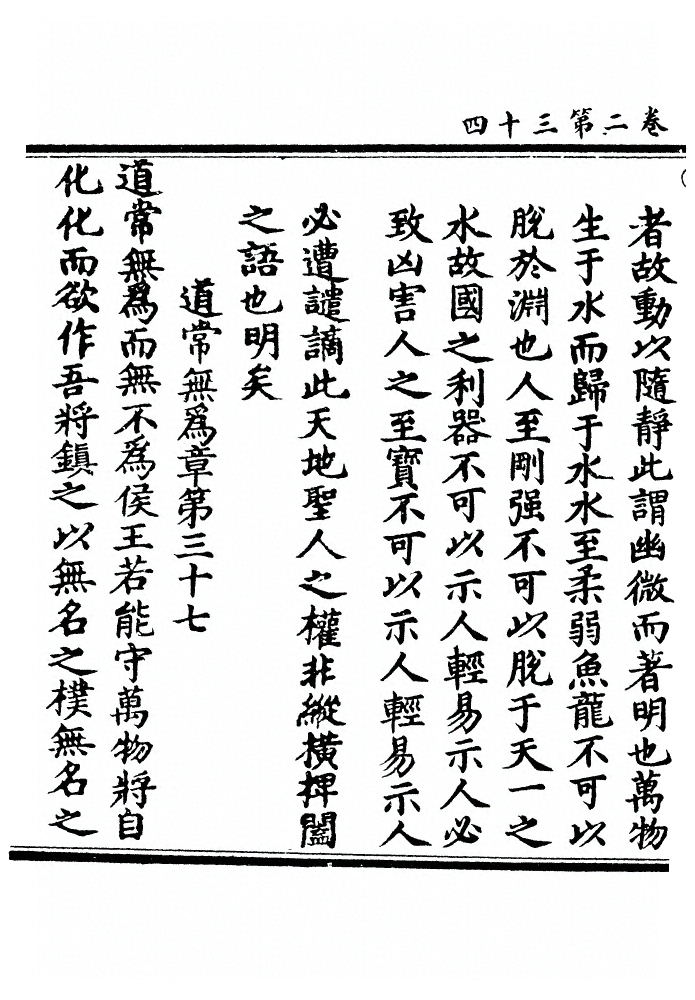 卷二第三十四
者故動以隨靜此謂幽微而著明也萬物
生于水而歸于水水至柔弱魚龍不可以
脫於淵也人至剛强不可以脫于天一之
水故國之利器不可以示人輕易示人必
致凶害人之至寶不可以示人輕易示人
必遭譴謫此天地聖人之權非縱橫捭闔
之語也明矣
道常無爲章第三十七
道常無爲而無不爲侯王若能守萬物將自
化化而欲作吾將鎮之以無名之樸無名之